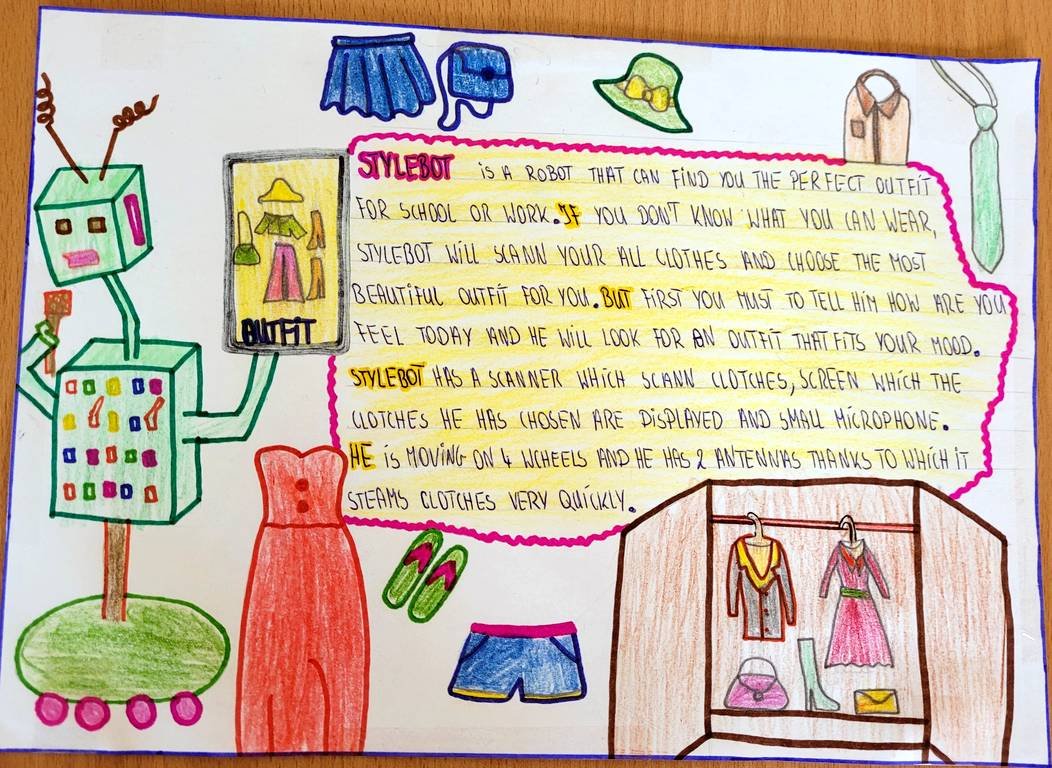 STYLEBOT IS A ROBOT THAT CAN FIND YOU THE PERFECT OUTFIT
FOR SCHOOL OR WORK. IF YOU DON'T KNOW WHAT YOU CAN WEAR,
STYLEBOT WILL SCANN YOUR ALL CLOTHES AND CHOOSE THE MOST
BEAUTIFUL OUTFIT FOR YOU. BUT FIRST YOU MUST TO TELL HIM HOW ARE YOU
FEEL TODAY AND HE WILL LOOK FOR AN OUTFIT THAT FITS YOUR MOOD.
STYLEBOT HAS A SCANNER WHICH SCANN CLOTCHES, SCREEN WHICH THE
CLOTCHES HE HAS CHOSEN ARE DISPLAYED AND SMALL MICROPHONE.
HE IS MOVING ON 4 WCHEELS AND HE HAS 2 ANTENNAS THANKS TO WHICH IT
STEAMS CLOTCHES VERY QUICKLY.
OUTFIT